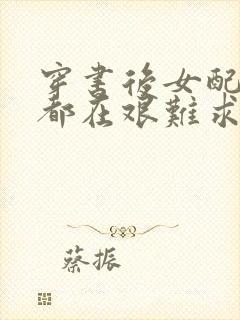 穿書後女配
都在艰難求
蔡振